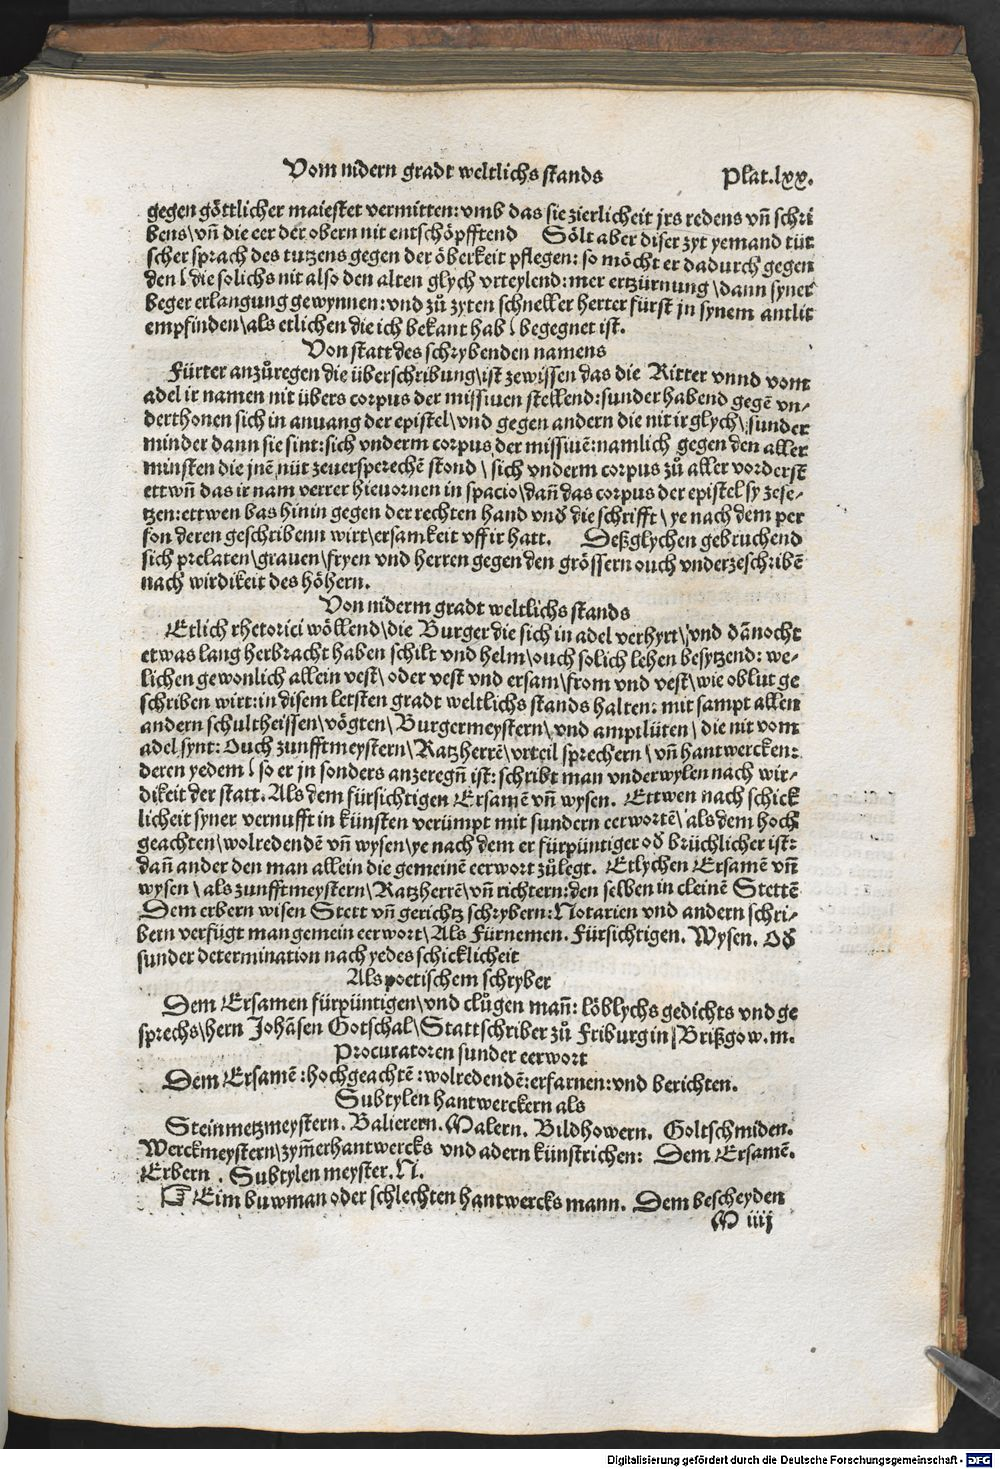 Vom nidern gradt weltlichs stands Plat.lxx.
gegen göttlicher maiestet vermitten: vmb das sie zierlicheit jrs redens vn̄ schri
bens\ vn̄ die eer der obern nit entschöpfftend Sölt aber diser zyt yemand tüt
scher sprach des tutzens gegen der öberkeit pflegen: so möcht er dadurch gegen
den ⌠ die solichs nit also den alten glych vrteylend: mer ertzürnung \ dann syner
beger erlangung gewynnen: vnd zů zyten schneller herter fürst jn synem antlit
empfinden\ als etlichen die ich bekant hab ⌠ begegnet ist.
Von statt des schrybenden namens
Fürter anzůregen die überschribung\ ist zewissen das die Ritter vnnd vom
adel ir namen nit übers corpus der missiuen stellend: sunder habend gegē vn⸗
derthonen sich in anuang der epistel\ vnd gegen andern die nit ir glych\ sunder
minder dann sie sint: sich vnderm corpus der missiuē: namlich gegen den aller
minsten die jnē nüt zeuersperechē stond \ sich vnderm corpus zů aller vorderst
ettwn̄ das ir nam verrer hieuornen in spacio\ dan̄ das corpus der epistel sy zese⸗
tzen: ettwen bas hinin gegen der rechten hand vnd̄ die schrifft \ ye nach dem per
son deren geschribenn wirt\ ersamkeit vff ir hatt. Deßglychen gebruchend
sich prelaten\ grauen\ fryen vnd herren gegen den grössern ouch vnderzeschribē
nach wirdikeit des höhern.
Von niderm gradt weltlichs stands
Etlich rhetorici wöllend\ die Burger die sich in adel verhyrt\ vnd dānocht
etwas lang herbracht haben schilt vnd helm\ ouch solich lehen besytzend: we⸗
lichen gewonlich allein vest\ oder vest vnd ersam\ from vnd vest\ wie oblut ge
schriben wirt: in disem letsten gradt weltlichs stands halten: mit sampt allen
andern schultheissen\ vögten\ Burgermeystern\ vnd amptlüten \ die nit vom
adel synt: Ouch zunfftmeystern\ Ratzherrē\ vrteil sprechern \ vn̄ hantwercken:
deren yedem ⌠ so er jn sonders anzeregn̄ ist: schribt man vnderwylen nach wir⸗
dikeit der statt. Als dem fürsichtigen Ersamē vn̄ wysen. Ettwen nach schick
licheit syner vernufft in künsten verümpt mit sundern eerwortē\ als dem hoch
geachten\ wolredendē vn̄ wysen\ ye nach dem er fürpüntiger od̄ brüchlicher ist:
dan̄ ander den man allein die gemeinē eerwort zůlegt. Etlychen Ersamē vn̄
wysen \ als zunfftmeystern\ Ratzherrē\ vn̄ richtern: den selben in cleinē Stettē
Dem erbern wisen Stett vn̄ gerichtz schrybern: Notarien vnd andern schri⸗
bern verfügt man gemein eerwort\ Als Fürnemen. Fürsichtigen. Wysen. Od̄
sunder determination nach yedes schicklicheit
Als poetischem schryber
Dem Ersamen fürpüntigen\ vnd clůgen man̄: löblychs gedichts vnd ge
sprechs\ hern Johāsen Gotschal\ Stattschriber zů Friburg in ⌠ Brißgow.m.
Procuratoren sunder eerwort
Dem Ersamē: hochgeachtē: wolredendē: erfarnen: vnd berichten.
Subtylen hantwerckern als
Steinmetzmeystern. Balierern. Malern. Bildhowern. Goltschmiden.
Werckmeystern\ zym̄erhantwercks vnd adern künstrichen: Dem Ersamē.
Erbern . Subtylen meyster. N.
☞ Eim buwman oder schlechten hantwercks mann. Dem bescheyden
M iiij
Digitalisierung gefördert durch die Deutsche Forschungsgemeinschaft - DFG